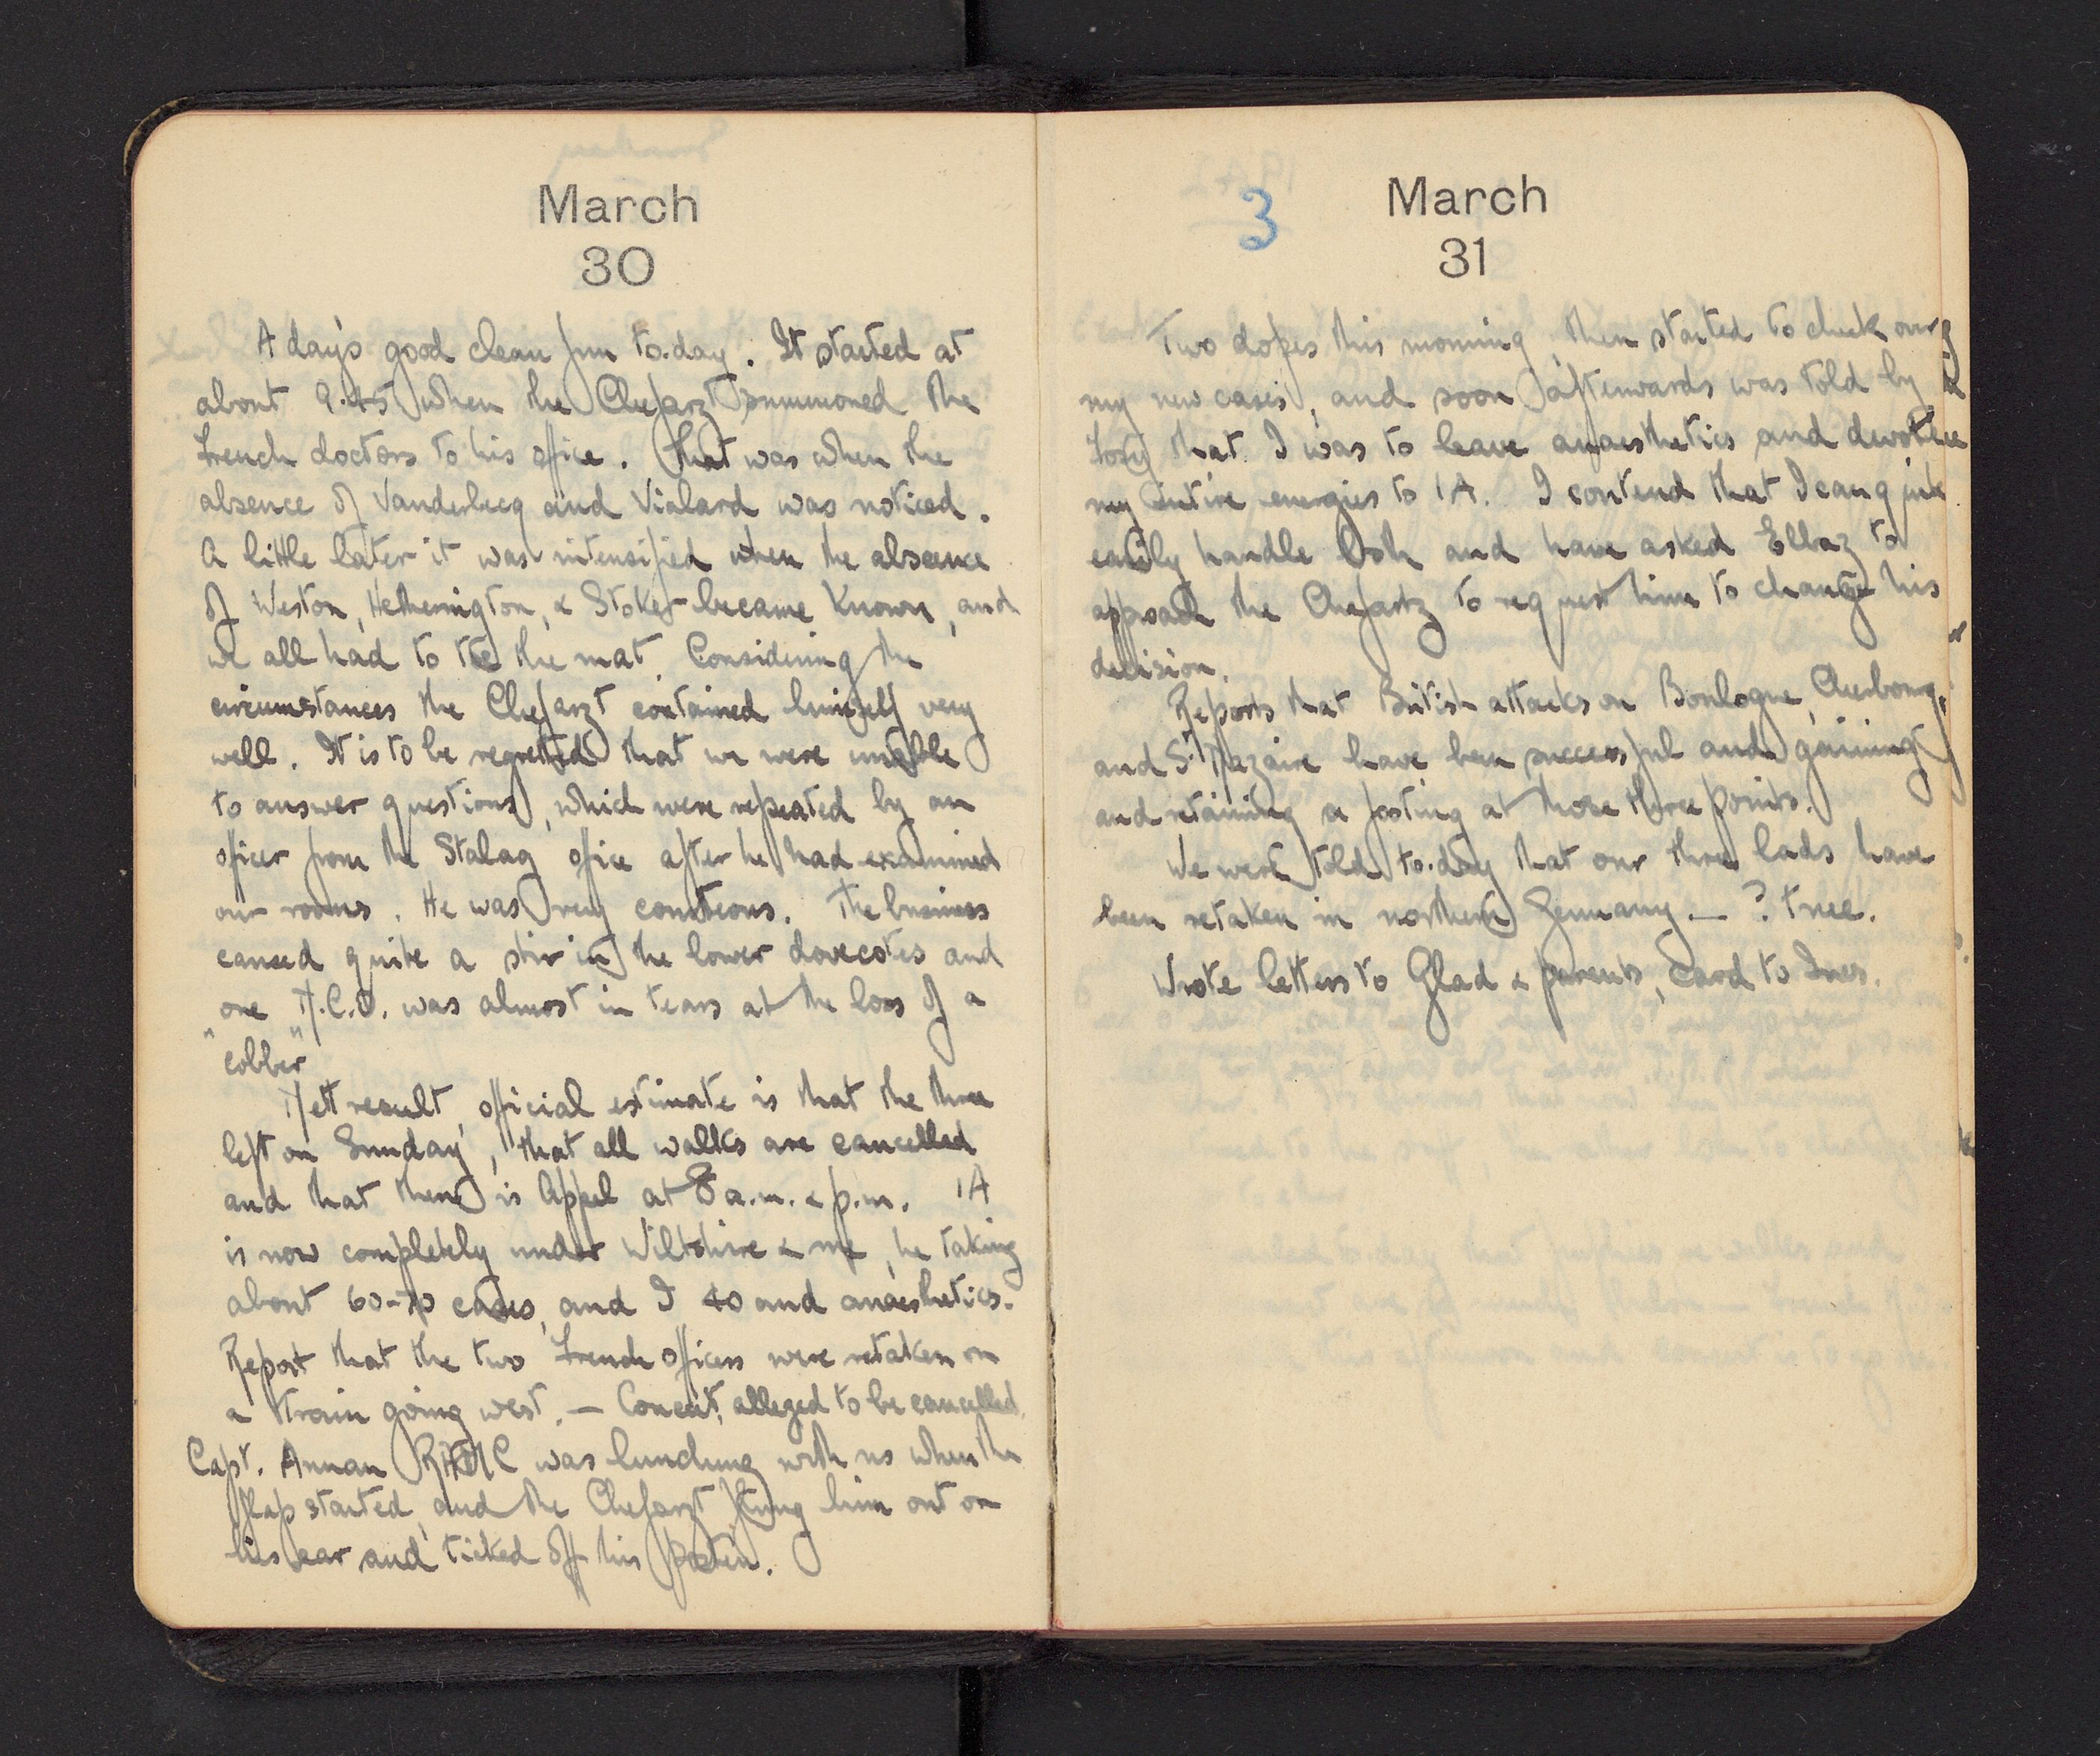 March
30
A day's good clean fun to-day. It started at
about 9.45 when the Chefarzt summoned the
French doctors to his office. That was when the
absence of Vanderbecq and Vialard was noticed.
A little later it was intensified when the absence
of Weston, Hetherington, & Stoker became known, and
we all had to toe the mat. Considering the
circumstances the Chefarzt contained himself very
well. It is to be regretted that we were unable
to answer questions, which were repeated by an
officer from the Stalag office after he had examined
our rooms. He was very courteous. The business
caused quite a stir in the lower dovecotes and
one N.C.O. was almost in tears at the loss of a
"cobber"
Nett result, official estimate is that the three
left on Sunday, that all walks are cancelled
and that there is Appel at 8 a.m. & p.m. 1A
is now completely under Wiltshire & me, he taking
about 60-70 cases, and I 40 and anaesthetics.
Report that the two French officers were retaken on
a train going west. — Concert, alleged to be cancelled.
Capt. Annan RAMC was lunching with us when the
flap started, and the Chefarzt flung him out on
his ear and ticked off his
3
March
31
Two dopes this morning, then started to check over
my new cases, and soon afterwards was told by
that I was to leave anaesthetics and devote
my entire energies to 1A. I contend that I can quite
easily handle both and have asked Elbaz to
approach the Chefartz to request him to change his
decision.
Reports that British attacks on Boulogne, Cherbourg,
and St Nazaire have been successful and gaining
and retaining a footing at those three points.
We were told to-day that our three lads have
been retaken in northern Germany — ? true.
Wrote letters to Glad & parents, card to Ines.